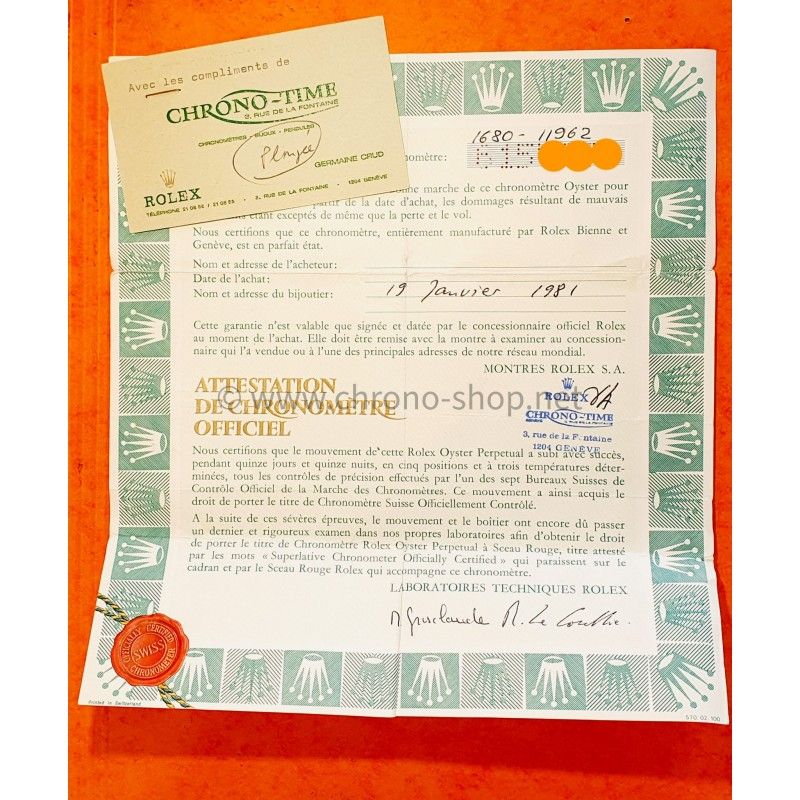 Avec les compliments de
CHRONO-TIME
3, RUE DE LA FONTAINE
CHRONOMÈTRES - BIJOUX - PENDULES
GERMAINE CRUD
ROLEX
TÉLÉPHONE 21 08 55 / 21 08 65 • 3, RUE DE LA FONTAINE • 1204 GENÈVE
1680 - 11962
nomètre: 615
nne marche de ce chronomètre Oyster pour
partir de la date d'achat, les dommages résultant de mauvais
étant exceptés de même que la perte et le vol.
Nous certifions que ce chronomètre, entièrement manufacturé par Rolex Bienne et
Genève, est en parfait état.
Nom et adresse de l'acheteur:
Date de l'achat:
Nom et adresse du bijoutier: 19 Janvier 1981
Cette garantie n'est valable que signée et datée par le concessionnaire officiel Rolex
au moment de l'achat. Elle doit être remise avec la montre à examiner au concession-
naire qui l'a vendue ou à l'une des principales adresses de notre réseau mondial.
MONTRES ROLEX S.A.
© www.chrono-shop.net
ATTESTATION
DE CHRONOMÈTRE
OFFICIEL
ROLEX
CHRONO-TIME
GENÈVE 3, RUE DE LA FONTAINE
3, rue de la Fontaine
1204 GENÈVE
Nous certifions que le mouvement de cette Rolex Oyster Perpetual a subi avec succès,
pendant quinze jours et quinze nuits, en cinq positions et à trois températures déter-
minées, tous les contrôles de précision effectués par l'un des sept Bureaux Suisses de
Contrôle Officiel de la Marche des Chronomètres. Ce mouvement a ainsi acquis le
droit de porter le titre de Chronomètre Suisse Officiellement Contrôlé.
A la suite de ces sévères épreuves, le mouvement et le boîtier ont encore dû passer
un dernier et rigoureux examen dans nos propres laboratoires afin d'obtenir le droit
de porter le titre de Chronomètre Rolex Oyster Perpetual à Sceau Rouge, titre attesté
par les mots « Superlative Chronometer Officially Certified » qui paraissent sur le
cadran et par le Sceau Rouge Rolex qui accompagne ce chronomètre.
LABORATOIRES TECHNIQUES ROLEX
OFFICIALLY CERTIFIED
SWISS
CHRONOMETER
Printed in Switzerland
570.02-100